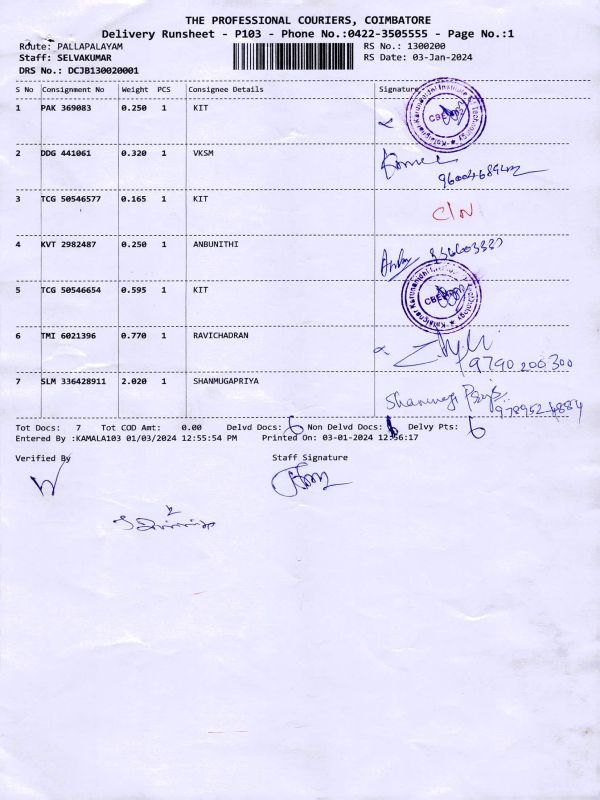 THE PROFESSIONAL COURIERS, COIMBATORE
Delivery Runsheet - P103 - Phone No.:0422-3505555 - Page No.:1
Route: PALLAPALAYAM RS No.: 1300200
Staff: SELVAKUMAR RS Date: 03-Jan-2024
DRS No.: DCJB130020001
S No Consignment No Weight PCS Consignee Details Signature
1 PAK 369083 0.250 1 KIT
2 DDG 441061 0.320 1 VKSM
3 TCG 50546577 0.165 1 KIT
4 KVT 2982487 0.250 1 ANBUNITHI
5 TCG 50546654 0.595 1 KIT
6 TMI 6021396 0.770 1 RAVICHADRAN
9790 200 300
7 SLM 336428911 2.020 1 SHANMUGAPRIYA
978952 4884
Tot Docs: 7 Tot COD Amt: 0.00 Delvd Docs: 6 Non Delvd Docs: Delvy Pts: 6
Entered By :KAMALA103 01/03/2024 12:55:54 PM Printed On: 03-01-2024 12:56:17
Verified By Staff Signature